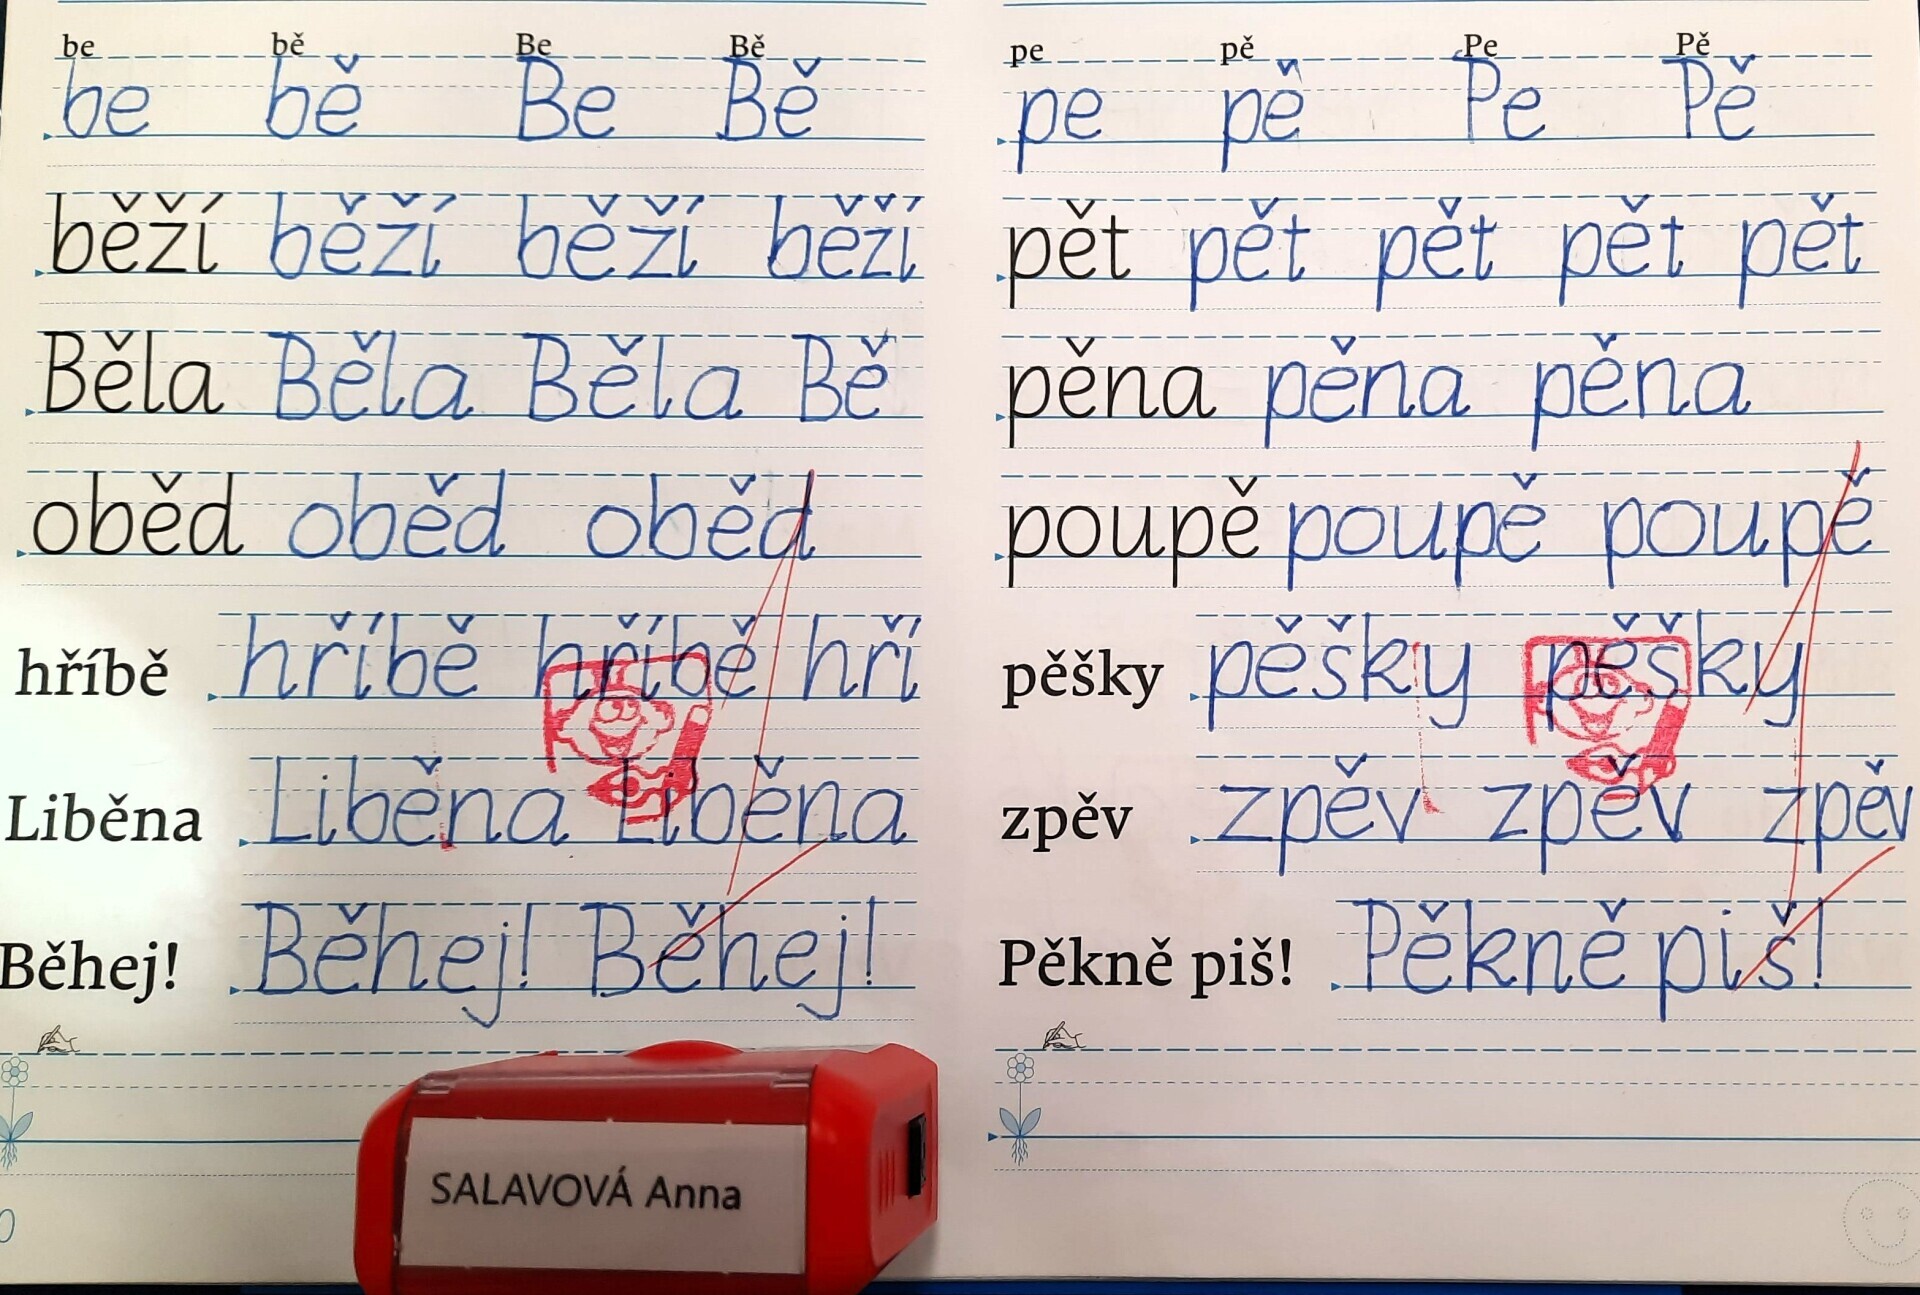 be bě Be Bě
be bě Be Bě
běží běží běží běží
Běla Běla Běla Bě
oběd oběd oběd
hříbě hříbě hříbě hří
Liběna Liběna Liběna
Běhej! Běhej! Běhej!
pe pě Pe Pě
pe pě Pe Pě
pět pět pět pět pět
pěna pěna pěna
poupě poupě poupě
pěšky pěšky pěšky
zpěv zpěv zpěv zpěv
Pěkně piš! Pěkně piš!
SALAVOVÁ Anna